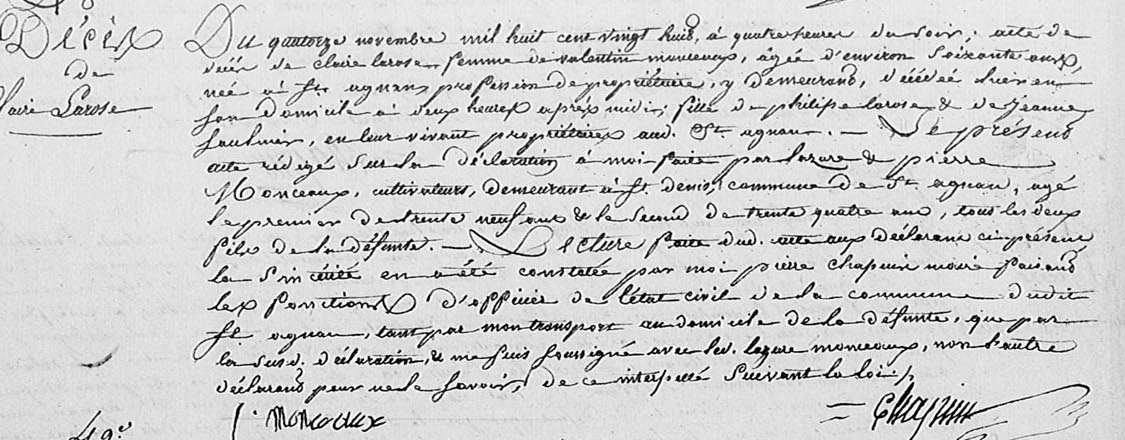 Décès
de
Claire Larose
Du quatorze novembre mil huit cent vingt huit, à quatre heures du soir, acte de
décès de Claire larose, femme de valentin monceaux, âgée d'environ Soixante ans,
née à St. agnan, profession de propriétaire, y demeurant, décédée hier en
Son domicile à deux heures après midi, fille de philipe larose & de Jeanne
Saulnier, en leur vivant propriétaires aud. St agnan. — Le présent
acte rédigé Sur la déclaration à moi faite par lazare & pierre
Monceaux, cultivateurs, demeurant à St. denis, commune de St agnan, agé
le premier de trente neuf ans & le Second de trente quatre ans, tous les deux
fils de la défunte. — Lecture faite dud. acte aux déclarans ci présent
la Sincérité en a été constatée par moi pierre Chapuin maire faisant
les fonctions d'officier de l'état civil de la commune dudit
St. agnan, tant par mon transport au domicile de la défunte, que par
la Susd. déclaration, & me Suis Soussigné avec led. lazare monceaux, non l'autre
déclarant pour ne le Savoir, de ce interpellé Suivant la loi.
Monceaux
49e